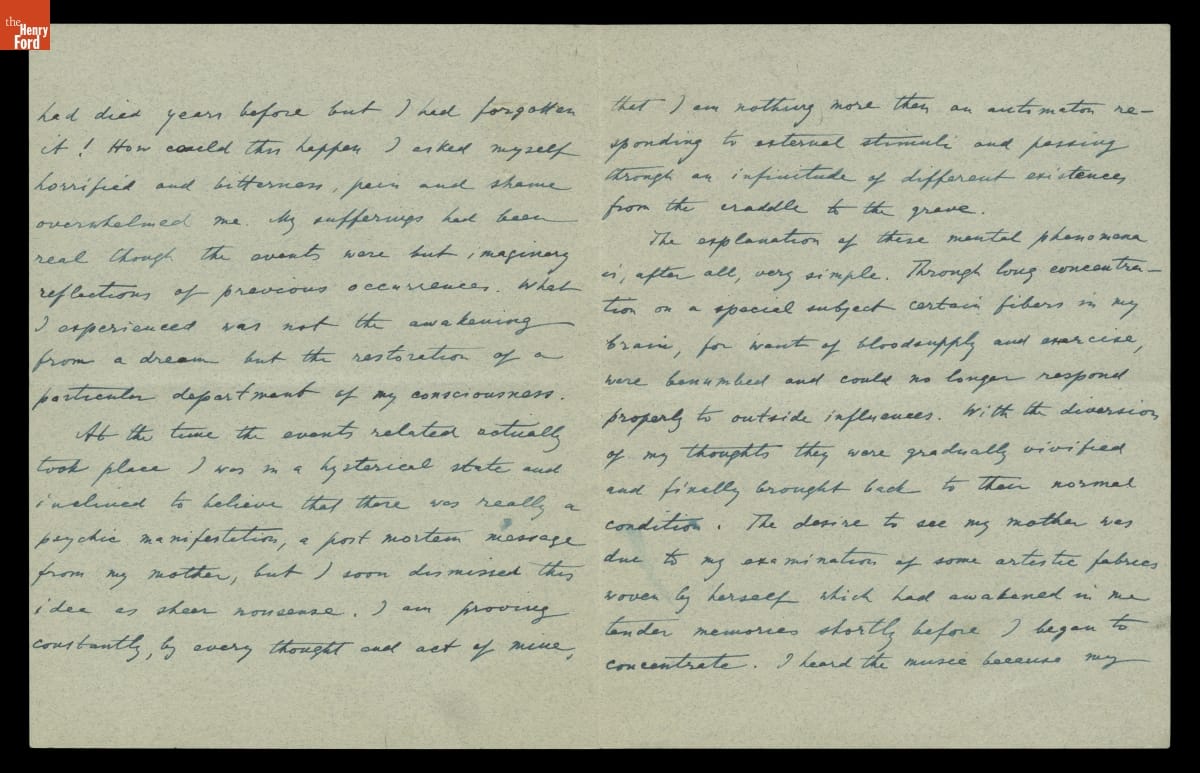 the
Henry
Ford
had died years before but I had forgotten
it! How could this happen I asked myself
horrified and bitterness, pain and shame
overwhelmed me. My sufferings had been
real though the events were but imaginary
reflections of previous occurrences. What
I experienced was not the awakening
from a dream but the restoration of a
particular department of my consciousness.
At the time the events related actually
took place I was in a hysterical state and
inclined to believe that there was really a
psychic manifestation, a post mortem message
from my mother, but I soon dismissed this
idea as sheer nonsense. I am proving
constantly, by every thought and act of mine,
that I am nothing more than an automaton re-
sponding to external stimuli and passing
through an infinitude of different existences
from the craddle to the grave.
The explanation of these mental phenomena
is, after all, very simple. Through long concentra-
tion on a special subject certain fibers in my
brain, for want of bloodsupply and exercise,
were benumbed and could no longer respond
properly to outside influences. With the diversion
of my thoughts they were gradually vivified
and finally brought back to their normal
condition. The desire to see my mother was
due to my examination of some artistic fabrics
woven by herself which had awakened in me
tender memories shortly before I began to
concentrate. I heard the music because my